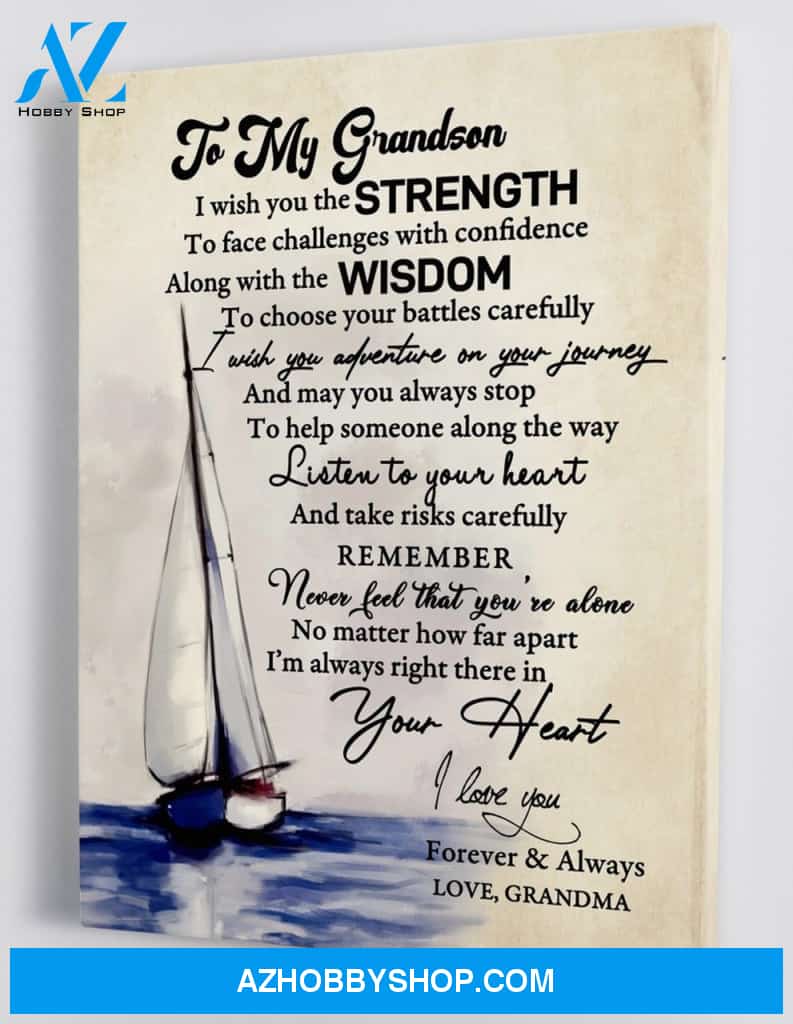 AZ
HOBBY SHOP
To My Grandson
I wish you the STRENGTH
To face challenges with confidence
Along with the WISDOM
To choose your battles carefully
I wish you adventure on your journey
And may you always stop
To help someone along the way
Listen to your heart
And take risks carefully
REMEMBER
Never feel that you're alone
No matter how far apart
I'm always right there in
Your Heart
I love you
Forever & Always
LOVE, GRANDMA
AZHOBBYSHOP.COM